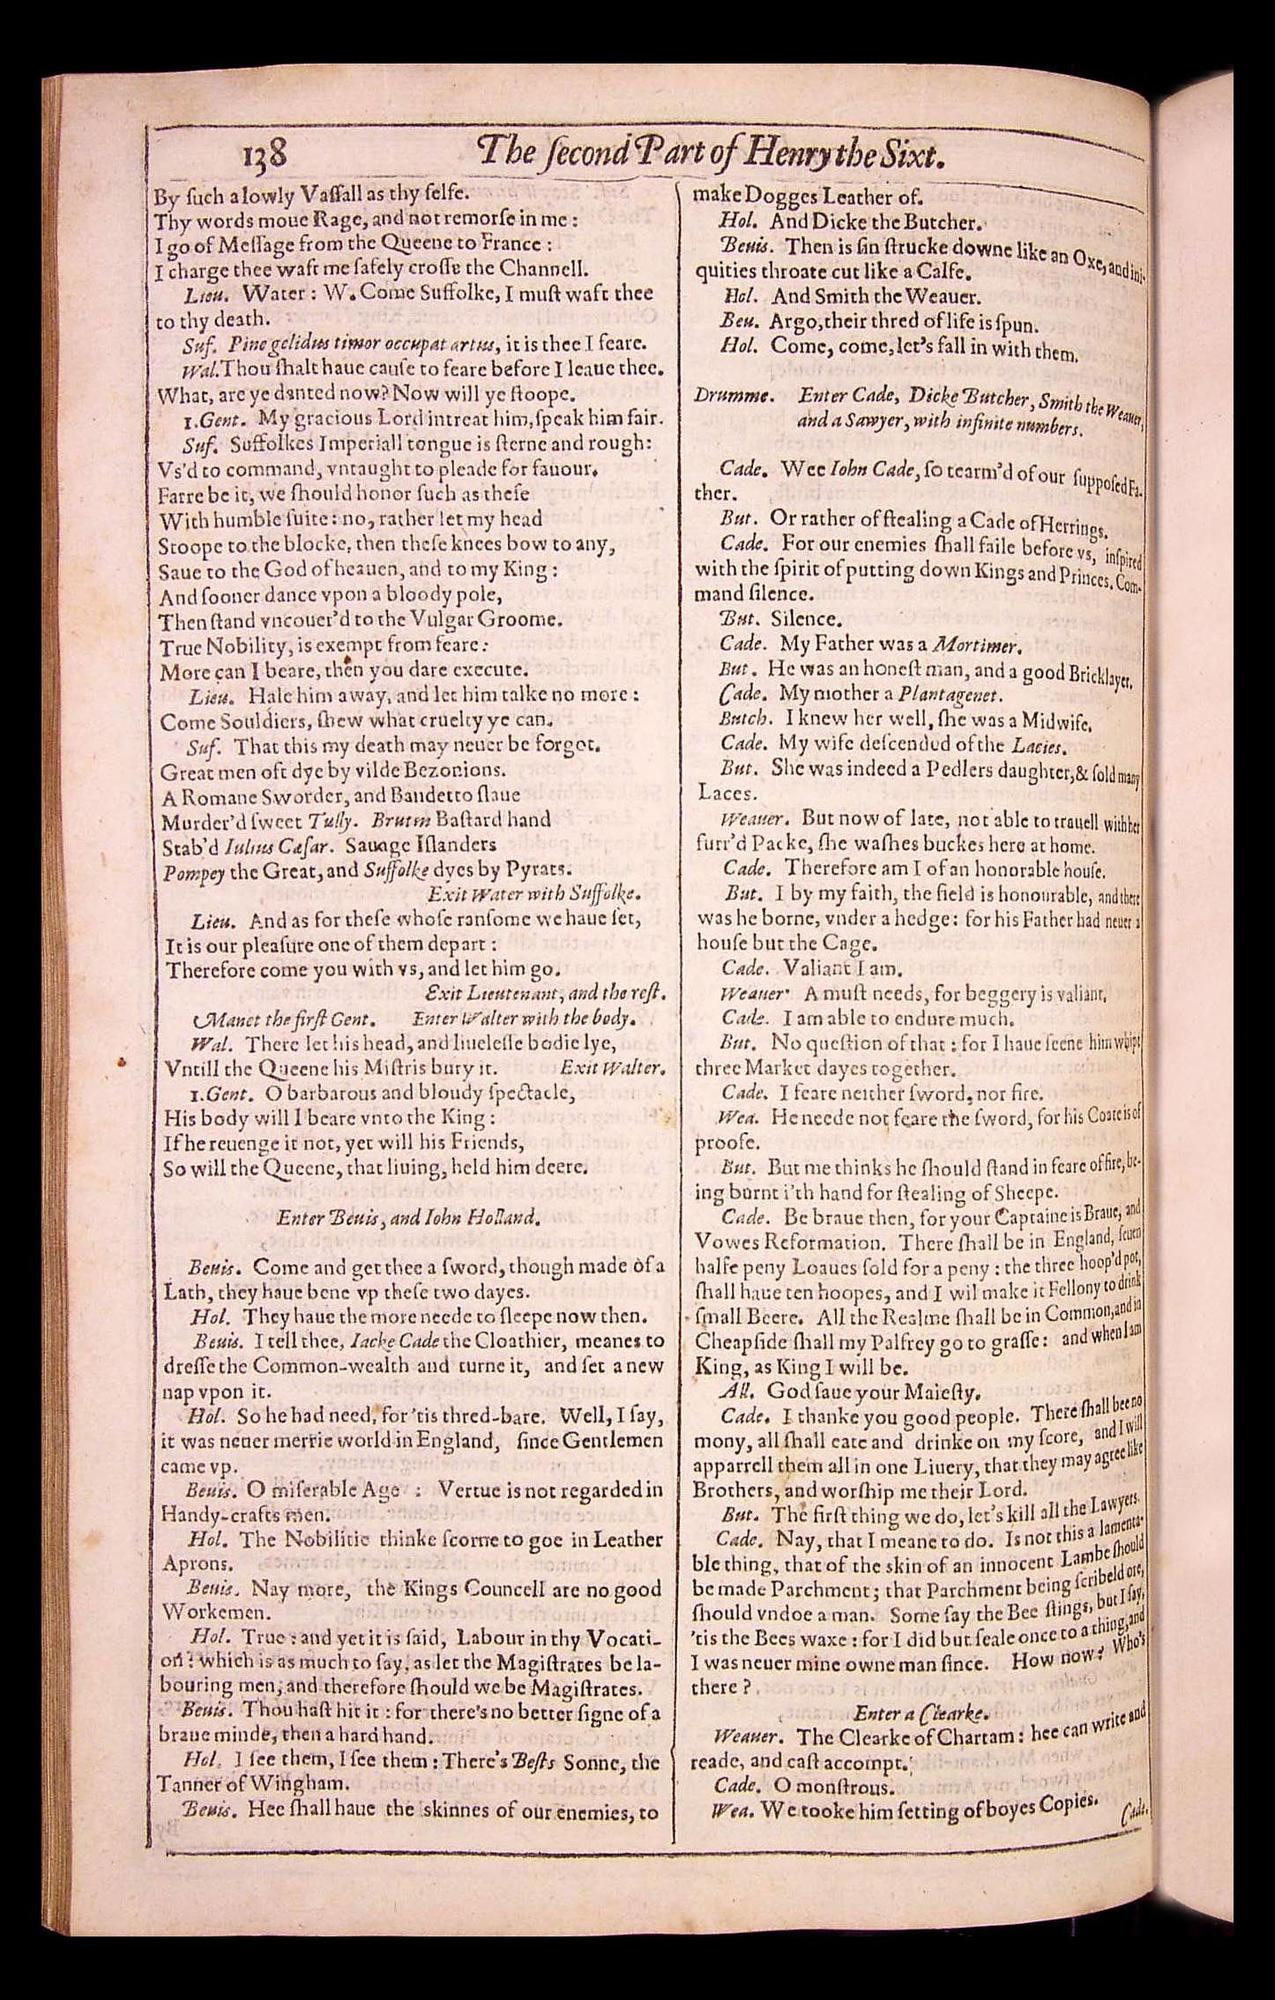 138
The ſecond Part of Henry the Sixt.
By ſuch a lowly Vaſſall as thy ſelfe.
Thy words moue Rage, and not remorſe in me :
I go of Meſſage from the Queene to France :
I charge thee waft me ſafely croſſe the Channell.
Lieu. Water : W. Come Suffolke, I muſt waft thee
to thy death.
Suf. Pine gelidus timor occupat artus, it is thee I feare.
Wal. Thou ſhalt haue cauſe to feare before I leaue thee.
What, are ye danted now? Now will ye ſtoope.
1. Gent. My gracious Lord intreat him, ſpeak him fair.
Suf. Suffolkes Imperiall tongue is ſterne and rough:
Vs'd to command, vntaught to pleade for fauour.
Farre be it, we ſhould honor ſuch as theſe
With humble ſuite: no, rather let my head
Stoope to the blocke, then theſe knees bow to any,
Saue to the God of heauen, and to my King :
And ſooner dance vpon a bloody pole,
Then ſtand vncouer'd to the Vulgar Groome.
True Nobility, is exempt from feare :
More can I beare, then you dare execute.
Lieu. Hale him away, and let him talke no more :
Come Souldiers, ſhew what cruelty ye can.
Suf. That this my death may neuer be forgot.
Great men oft dye by vilde Bezonions.
A Romane Sworder, and Bandetto ſlaue
Murder'd ſweet Tully. Brutus Baſtard hand
Stab'd Iulius Cæſar. Sauage Iſlanders
Pompey the Great, and Suffolke dyes by Pyrats.
Exit Water with Suffolke.
Lieu. And as for theſe whoſe ranſome we haue ſet,
It is our pleaſure one of them depart :
Therefore come you with vs, and let him go.
Exit Lieutenant, and the reſt.
Manet the firſt Gent. Enter Walter with the body.
Wal. There let his head, and liueleſſe bodie lye,
Vntill the Queene his Miſtris bury it. Exit Walter.
1. Gent. O barbarous and bloudy ſpectacle,
His body will I beare vnto the King :
If he reuenge it not, yet will his Friends,
So will the Queene, that liuing, held him deere.
Enter Beuis, and Iohn Holland.
Beuis. Come and get thee a ſword, though made of a
Lath, they haue bene vp theſe two dayes.
Hol. They haue the more neede to ſleepe now then.
Beuis. I tell thee, Iacke Cade the Cloathier, meanes to
dreſſe the Common-wealth and turne it, and ſet a new
nap vpon it.
Hol. So he had need, for 'tis thred-bare. Well, I ſay,
it was neuer merrie world in England, ſince Gentlemen
came vp.
Beuis. O miſerable Age : Vertue is not regarded in
Handy-crafts men.
Hol. The Nobilitie thinke ſcorne to goe in Leather
Aprons.
Beuis. Nay more, the Kings Councell are no good
Workemen.
Hol. True : and yet it is ſaid, Labour in thy Vocati-
on : which is as much to ſay, as let the Magiſtrates be la-
bouring men, and therefore ſhould we be Magiſtrates.
Beuis. Thou haſt hit it : for there's no better ſigne of a
braue minde, then a hard hand.
Hol. I ſee them, I ſee them : There's Beſts Sonne, the
Tanner of Wingham.
Beuis. Hee ſhall haue the skinnes of our enemies, to
make Dogges Leather of.
Hol. And Dicke the Butcher.
Beuis. Then is ſin ſtrucke downe like an Oxe, and ini-
quities throate cut like a Calfe.
Hol. And Smith the Weauer.
Beu. Argo, their thred of life is ſpun.
Hol. Come, come, let's fall in with them.
Drumme. Enter Cade, Dicke Butcher, Smith the Weauer,
and a Sawyer, with infinite numbers.
Cade. Wee Iohn Cade, ſo tearm'd of our ſuppoſed Fa-
ther.
But. Or rather of ſtealing a Cade of Herrings.
Cade. For our enemies ſhall faile before vs, inſpired
with the ſpirit of putting down Kings and Princes. Com-
mand ſilence.
But. Silence.
Cade. My Father was a Mortimer.
But. He was an honeſt man, and a good Bricklayer.
Cade. My mother a Plantagenet.
Butch. I knew her well, ſhe was a Midwife.
Cade. My wife deſcended of the Lacies.
But. She was indeed a Pedlers daughter, & ſold many
Laces.
Weauer. But now of late, not able to trauell with her
furr'd Packe, ſhe waſhes buckes here at home.
Cade. Therefore am I of an honorable houſe.
But. I by my faith, the field is honourable, and there
was he borne, vnder a hedge : for his Father had neuer a
houſe but the Cage.
Cade. Valiant I am.
Weauer. A muſt needs, for beggery is valiant.
Cade. I am able to endure much.
But. No queſtion of that : for I haue ſeene him whipt
three Market dayes together.
Cade. I feare neither ſword, nor fire.
Wea. He neede not feare the ſword, for his Coate is of
proofe.
But. But me thinks he ſhould ſtand in feare of fire, be-
ing burnt i'th hand for ſtealing of Sheepe.
Cade. Be braue then, for your Captaine is Braue, and
Vowes Reformation. There ſhall be in England, ſeuen
halfe peny Loaues ſold for a peny : the three hoop'd pot,
ſhall haue ten hoopes, and I wil make it Fellony to drink
ſmall Beere. All the Realme ſhall be in Common, and in
Cheapſide ſhall my Palfrey go to graſſe : and when I am
King, as King I will be.
All. God ſaue your Maieſty.
Cade. I thanke you good people. There ſhall bee no
mony, all ſhall eate and drinke on my ſcore, and I will
apparrell them all in one Liuery, that they may agree like
Brothers, and worſhip me their Lord.
But. The firſt thing we do, let's kill all the Lawyers.
Cade. Nay, that I meane to do. Is not this a lamenta-
ble thing, that of the skin of an innocent Lambe ſhould
be made Parchment; that Parchment being ſcribeld ore,
ſhould vndoe a man. Some ſay the Bee ſtings, but I ſay,
'tis the Bees waxe : for I did but ſeale once to a thing, and
I was neuer mine owne man ſince. How now? Who's
there ?
Enter a Clearke.
Weauer. The Clearke of Chartam : hee can write and
reade, and caſt accompt.
Cade. O monſtrous.
Wea. We tooke him ſetting of boyes Copies.
Cade.